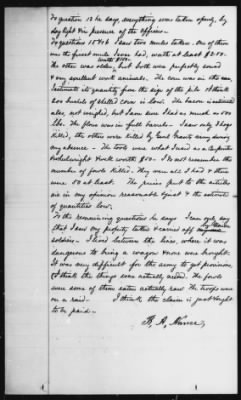 To question 13 he says, everything was taken openly, by
daylight & in presence of the officers.
To questions 15 & 16 I saw two mules taken. One of them
was the finest mule I ever had, worth at least $200.
The other was older, but both were perfectly sound
& my excellent work animals. The corn was in the ear,
I estimate its quantity from the size of the pile. I think
200 bushels of shelled corn is low. The bacon is estimated
also, not weighed, but I am sure I had as much as
lbs. The flour was in full barrels. I saw only 2 hogs
killed, the others were killed by Genl Grants army during
my absence. The tools were what I used as a Carpenter
& wheelwright & well worth $50. I do not remember the
number of fowls killed. They were all I had & there
were 50 at least. The prices put to the articles
are in my opinion reasonable & the estimate
of quantities low.
To the remaining questions he says I can only say
that I saw my property taken & carried off by these
soldiers. I lived between the lines, where it was
dangerous to bring a wagon & none was brought.
It was very difficult for the army to get provisions,
& I think the things was actually need. The fowls
were some of them eaten actually raw. The troops were
on a raid. I think the claim is just & ought
to be paid.